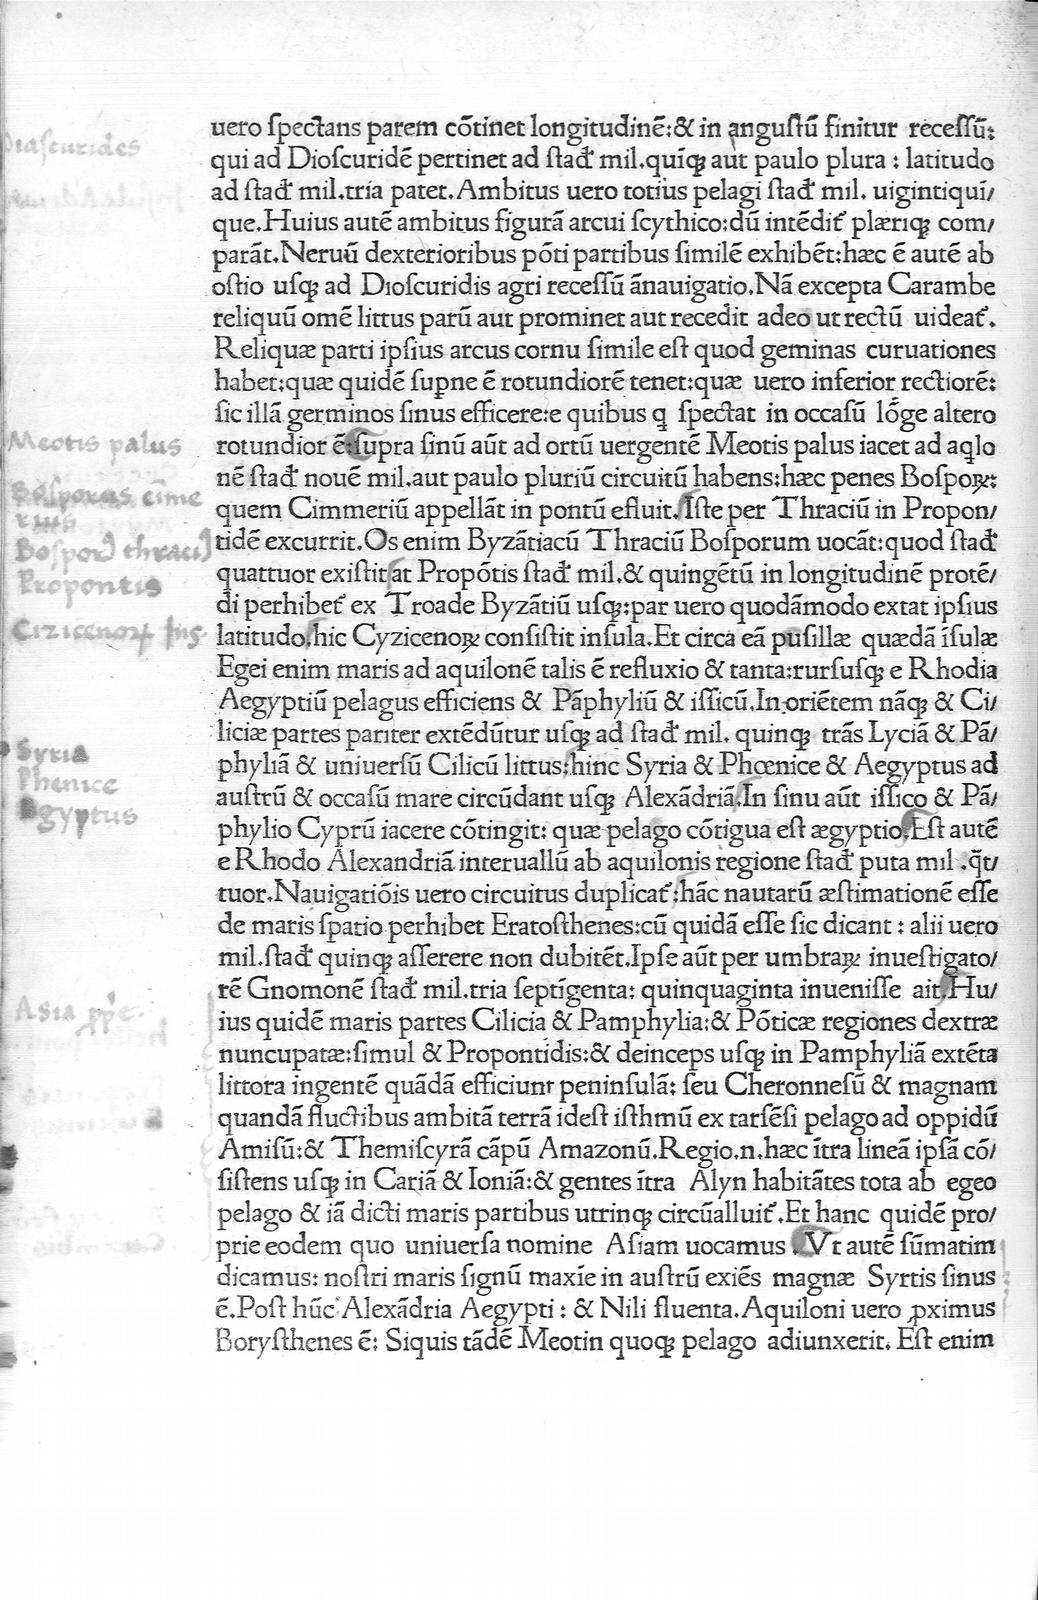 uero ſpectans parem cõtinet longitudinẽ:& in anguſtũ finitur receſſũ:
Diaſcurides
qui ad Dioſcuridẽ pertinet ad ſtađ mil.quĩqꝫ aut paulo plura : latitudo
ad ſtađ mil.tria patet.Ambitus uero totius pelagi ſtađ mil. uigintiquĩ/
que.Huius autẽ ambitus figurã arcui ſcythico:dũ intẽdit᷑ plæriqꝫ com/
parãt.Neruũ dexterioribus põti partibus ſimilẽ exhibẽt:hæc ẽ autẽ ab
oſtio uſqꝫ ad Dioſcuridis agri receſſũ ãnauigatio.Nã excepta Carambe
reliquũ omẽ littus parũ aut prominet aut recedit adeo ut rectũ uideat᷑.
Reliquæ parti ipſius arcus cornu ſimile eſt quod geminas curuationes
habet:quæ quidẽ ſuꝑne ẽ rotundiorẽ tenet:quæ uero inferior rectiorẽ:
ſic illã germinos ſinus efficere:e quibus q̨ ſpectat in occaſũ lõge altero
Meotis palus
rotundior ẽ:ſupra ſinũ aũt ad ortũ uergentẽ Meotis palus iacet ad aq̨lo
nẽ ſtađ nouẽ mil.aut paulo pluriũ circuitũ habens:hæc penes Boſpoꝝ:
Boſporus cĩme
rius
quem Cimmeriũ appellãt in pontũ efluit.Iſte per Thraciũ in Propon/
tidẽ excurrit.Os enim Byzãtiacũ Thraciũ Boſporum uocãt:quod ſtađ
Propontis
quattuor exiſtit:at Propõtis ſtađ mil.& quingẽtũ in longitudinẽ protẽ/
di perhibet᷑ ex Troade Byzãtiũ uſqꝫ:par uero quodãmodo extat ipſius
Cizicenoꝝ Inſ.
latitudo.hic Cyzicenoꝝ conſiſtit inſula.Et circa eã puſillæ quædã ĩſulæ
Egei enim maris ad aquilonẽ talis ẽ refluxio & tanta:rurſuſqꝫ e Rhodia
Aegyptiũ pelagus efficiens & Pãphyliũ & iſſicũ.In oriẽtem nãqꝫ & Ci/
liciæ partes pariter extẽdũtur uſqꝫ ad ſtađ mil. quinqꝫ trãs Lyciã & Pã/
Syria
Phenice
Egyptus
phyliã & uniuerſũ Cilicũ littus:hinc Syria & Phœnice & Aegyptus ad
auſtrũ & occaſũ mare circũdant uſqꝫ Alexãdriã.In ſinu aũt iſſico & Pã/
phylio Cyprũ iacere cõtingit: quæ pelago cõtigua eſt ægyptio.Eſt autẽ
e Rhodo Alexandriã interuallũ ab aquilonis regione ſtađ puta mil .q̃t/
tuor.Nauigatiõis uero circuitus duplicat᷑:hãc nautarũ æſtimationẽ eſſe
de maris ſpatio perhibet Eratoſthenes:cũ quidã eſſe ſic dicant : alii uero
mil.ſtađ quinqꝫ aſſerere non dubitẽt.Ipſe aũt per umbraꝝ inueſtigato/
rẽ Gnomonẽ ſtađ mil.tria ſeptĩgenta: quinquaginta inueniſſe ait.Hu/
Asia
ius quidẽ maris partes Cilicia & Pamphylia:& Põticæ regiones dextræ
nuncupatæ:ſimul & Propontidis:& deinceps uſqꝫ in Pamphyliã extẽta
littora ingentẽ quãdã efficiunt peninſulã: ſeu Cheronneſũ & magnam
quandã fluctibus ambitã terrã ideſt iſthmũ ex tarſẽſi pelago ad oppidũ
Amiſũ:& Themiſcyrã cãpũ Amazonũ.Regio.n.hæc ĩtra lineã ipſã cõ/
ſiſtens uſqꝫ in Cariã & Ioniã:& gentes ĩtra Alyn habitãtes tota ab egeo
pelago & iã dicti maris partibus utrinqꝫ circũalluit᷑.Et hanc quidẽ pro/
prie eodem quo uniuerſa nomine Aſiam uocamus .Vt autẽ ſũmatim
dicamus: noſtri maris ſignũ maxĩe in auſtrũ exiẽs magnæ Syrtis ſinus
ẽ.Poſt hũc Alexãdria Aegypti : & Nili fluenta.Aquiloni uero ꝓximus
Boryſthenes ẽ: Siquis tãdẽ Meotin quoqꝫ pelago adiunxerit. Eſt enim